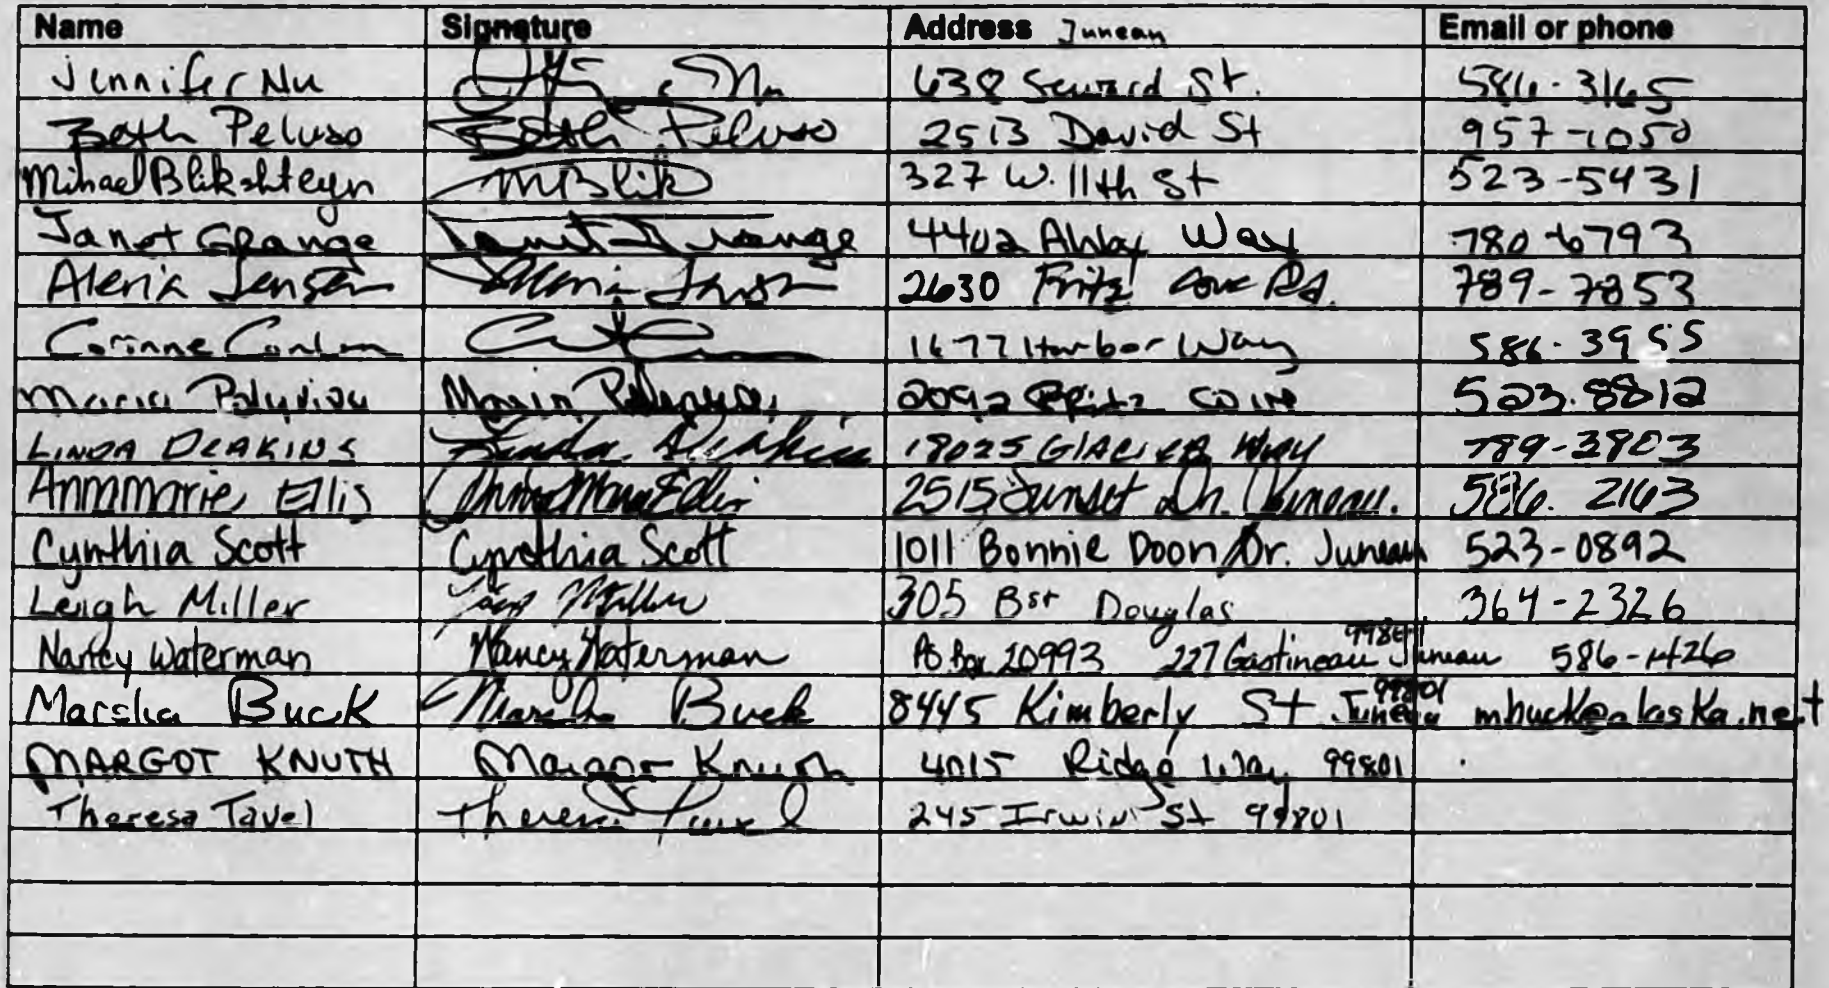 Name Signature Address Juneau Email or phone
Jennifer Nu 638 Seward St. 586-3165
Beth Peluso Beth Peluso 2513 David St 957-1050
Mihael Blikshteyn MBlik 327 W. 11th St 523-5431
Janet Grange Janet Grange 4402 Abby Way 780-6793
Aleria Jensen Aleria Jensen 2630 Fritz Cove Rd. 789-7853
Corinne Conlon 1677 Harbor Way 586-3955
Maria 2092 Fritz Cove 523.8812
LINDA DEAKINS Linda Deakins 18025 GLACIER HWY 789-3803
Annmarie Ellis 2515 Sunset Dr. Juneau. 586. 2163
Cynthia Scott Cynthia Scott 1011 Bonnie Doon Dr. Juneau 523-0892
Leigh Miller Leigh Miller 305 B St Douglas 364-2326
Nancy Waterman Nancy Waterman PO Box 20993 227 Gastineau Juneau 99801 586-1426
Marsha Buck Marsha Buck 8445 Kimberly St Juneau 99801 mbuck@alaska.net
MARGOT KNUTH Margot Knuth 4015 Ridge Way 99801
Theresa Tavel Theresa Tavel 245 Irwin St 99801